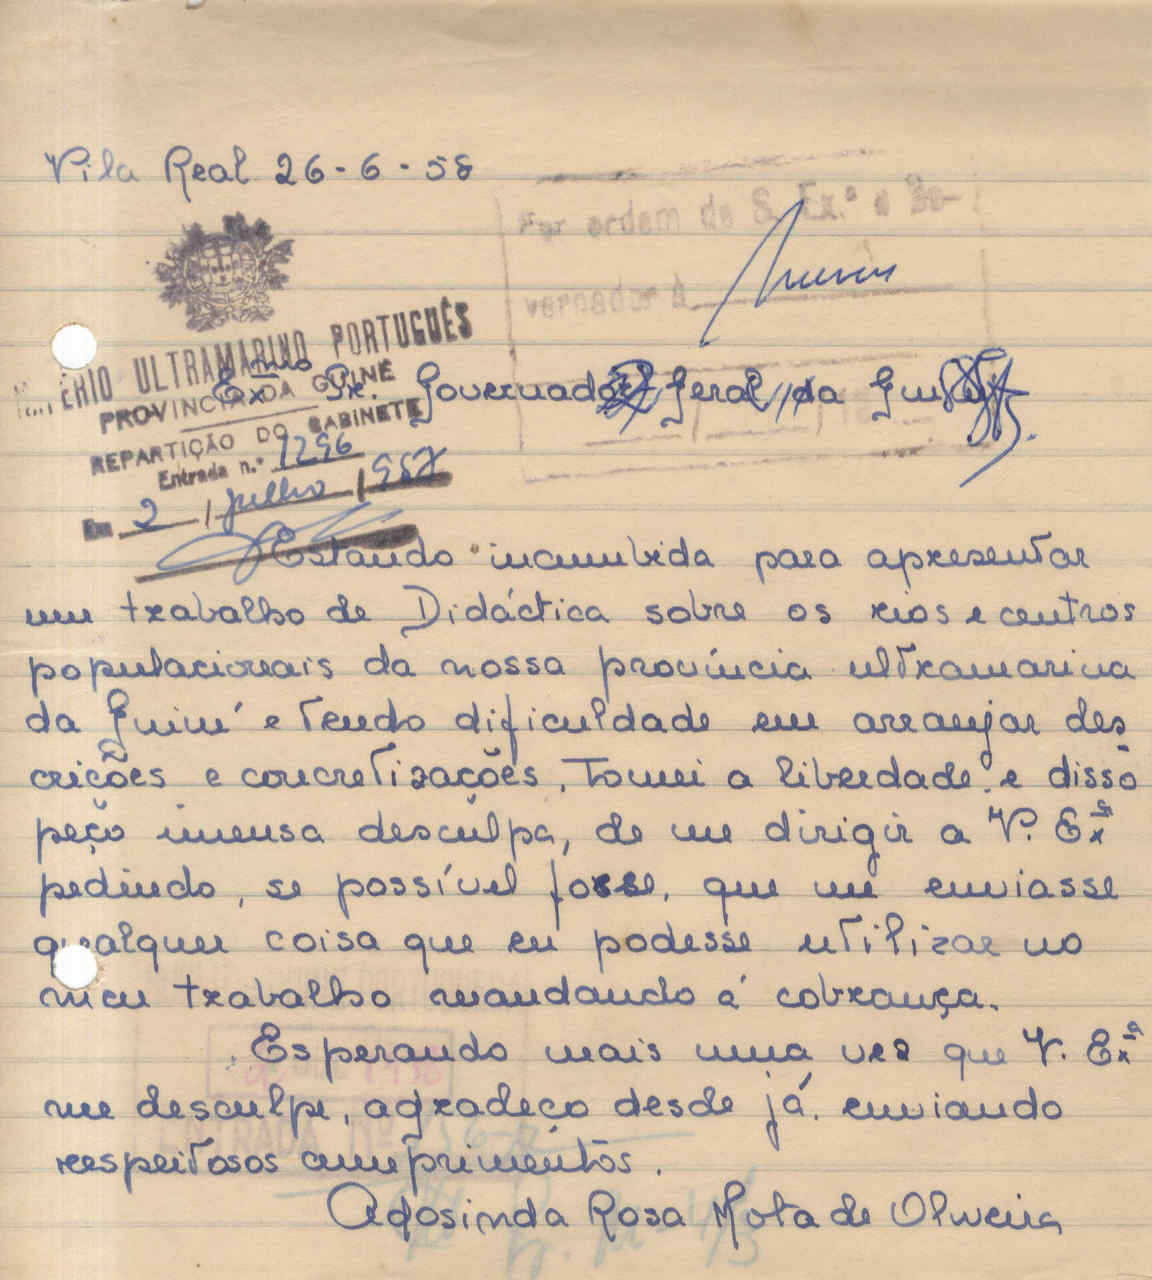 Vila Real 26-6-58
Por ordem de S. Ex.ª o Go-
vernador à
IMPÉRIO ULTRAMARINO PORTUGUÊS
PROVINCIA DA GUINÉ
REPARTIÇÃO DO GABINETE
Entrada n.º 1296
Em 2 / Julho / 1958
Exmo Sr. Governador Geral da Guiné
Estando incumbida para apresentar
um trabalho de Didáctica sobre os rios e centros
populacionais da nossa província ultramarina
da Guiné e tendo dificuldade em arranjar des
crições e concretizações, tomei a liberdade, e disso
peço imensa desculpa, de me dirigir a V. Exª
pedindo, se possível fosse, que me enviasse
qualquer coisa que eu podesse utilizar no
meu trabalho mandando á cobrança.
Esperando mais uma vez que V. Exª
me desculpe, agradeço desde já, enviando
respeitosos cumprimentos.
ENTRADA Nº
Adosinda Rosa Mota de Oliveira